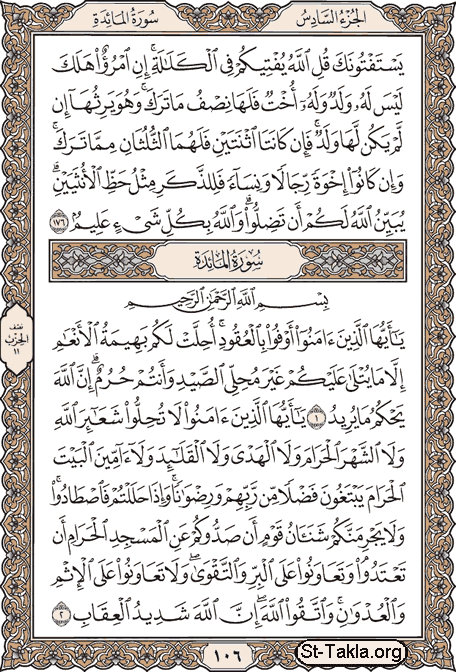 الجزء السادس
سورة المائدة
يَسْتَفْتُونَكَ قُلِ ٱللَّهُ يُفْتِيكُمْ فِى ٱلْكَلَـٰلَةِ ۚ إِنِ ٱمْرُؤٌا۟ هَلَكَ
لَيْسَ لَهُۥ وَلَدٌ وَلَهُۥٓ أُخْتٌ فَلَهَا نِصْفُ مَا تَرَكَ ۚ وَهُوَ يَرِثُهَآ إِن
لَّمْ يَكُن لَّهَا وَلَدٌ ۚ فَإِن كَانَتَا ٱثْنَتَيْنِ فَلَهُمَا ٱلثُّلُثَانِ مِمَّا تَرَكَ ۚ
وَإِن كَانُوٓا۟ إِخْوَةً رِّجَالًا وَنِسَآءً فَلِلذَّكَرِ مِثْلُ حَظِّ ٱلْأُنثَيَيْنِ ۗ
يُبَيِّنُ ٱللَّهُ لَكُمْ أَن تَضِلُّوا۟ ۗ وَٱللَّهُ بِكُلِّ شَىْءٍ عَلِيمٌۢ ١٧٦
سُورَةُ المَائِدَةِ
بِسْمِ ٱللَّهِ ٱلرَّحْمَـٰنِ ٱلرَّحِيمِ
يَـٰٓأَيُّهَا ٱلَّذِينَ ءَامَنُوٓا۟ أَوْفُوا۟ بِٱلْعُقُودِ ۚ أُحِلَّتْ لَكُم بَهِيمَةُ ٱلْأَنْعَـٰمِ
إِلَّا مَا يُتْلَىٰ عَلَيْكُمْ غَيْرَ مُحِلِّى ٱلصَّيْدِ وَأَنتُمْ حُرُمٌ ۗ إِنَّ ٱللَّهَ
يَحْكُمُ مَا يُرِيدُ ١ يَـٰٓأَيُّهَا ٱلَّذِينَ ءَامَنُوا۟ لَا تُحِلُّوا۟ شَعَـٰٓئِرَ ٱللَّهِ
وَلَا ٱلشَّهْرَ ٱلْحَرَامَ وَلَا ٱلْهَدْىَ وَلَا ٱلْقَلَـٰٓئِدَ وَلَآ ءَآمِّينَ ٱلْبَيْتَ
ٱلْحَرَامَ يَبْتَغُونَ فَضْلًا مِّن رَّبِّهِمْ وَرِضْوَٰنًا ۚ وَإِذَا حَلَلْتُمْ فَٱصْطَادُوا۟ ۚ
وَلَا يَجْرِمَنَّكُمْ شَنَـَٔانُ قَوْمٍ أَن صَدُّوكُمْ عَنِ ٱلْمَسْجِدِ ٱلْحَرَامِ أَن
تَعْتَدُوا۟ ۘ وَتَعَاوَنُوا۟ عَلَى ٱلْبِرِّ وَٱلتَّقْوَىٰ ۖ وَلَا تَعَاوَنُوا۟ عَلَى ٱلْإِثْمِ
وَٱلْعُدْوَٰنِ ۚ وَٱتَّقُوا۟ ٱللَّهَ ۖ إِنَّ ٱللَّهَ شَدِيدُ ٱلْعِقَابِ ٢
نصف
الحزب
١١
١٠٦
St-Takla.org